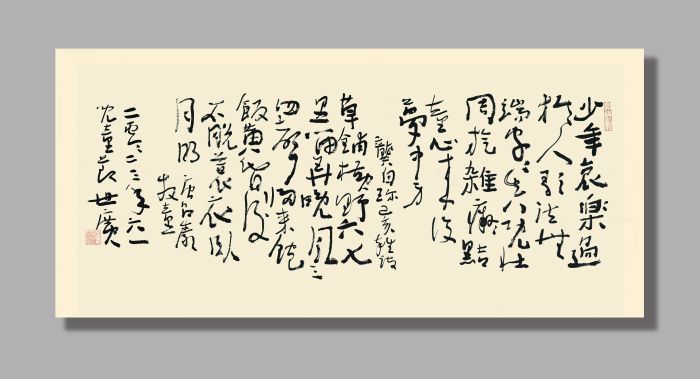 少年哀樂過
於人歌泣無
端字字真既壯
周旋雜癡黠
童心來復
夢中身
龔自珍己亥雜詩
草鋪橫野六七
里笛弄晚風三
四聲歸來飽
飯黃昏後
不脫蓑衣臥
月明 唐呂岩
牧童
二零二三年六一
兒童節 世廣